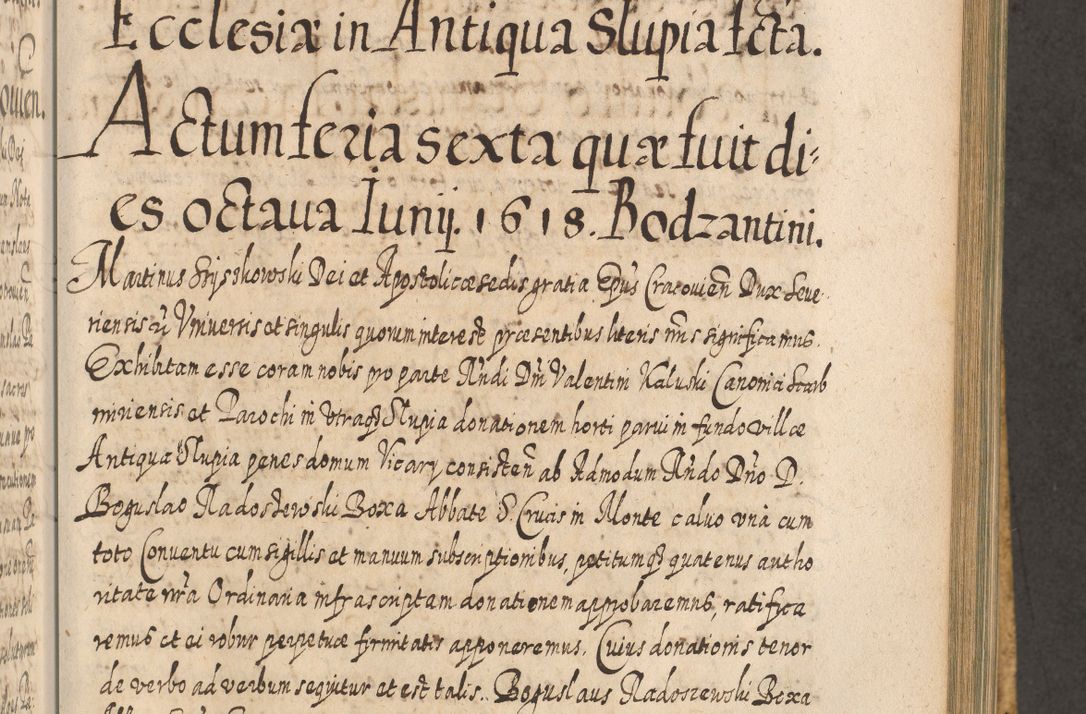 Ecclesiæ in Antiqua Slupia fcta.
Actum feria sexta quæ fuit di-
es octaua Iunij. 1618. Bodzantini.
Martinus Szyszkowski Dei et Apostolicæ sedis gratia Epũs Cracouieñ Dux Seue
riensis Vniuersis et singulis quorum interest præsentibus literis nr̃is significamus.
Exhibitam esse coram nobis pro parte Rñdi Dñi Valentini Kaluski Canonici Scarb
miriensis et Parochi in Vtraq3 Slupia donationem horti parui in fundo villæ
Antiquæ Slupia penes domum Vicary consisteñ ab Admodum Rñdo Dño D.
Boguslao Radostewski Boxa Abbate S. Crucis in Monte caluo vna cum
toto Conuentu cum sigillis et manuum subscriptionibus, petitumq3 quatenus autho
ritate nr̃a Ordinaria infrascriptam donationem approbaremus, ratifica
remus et ei robur perpetuæ firmitatis apponeremus. Cuius donationis tenor
de verbo ad verbum sequitur et est talis. Boguslaus Radoszewski Boxa